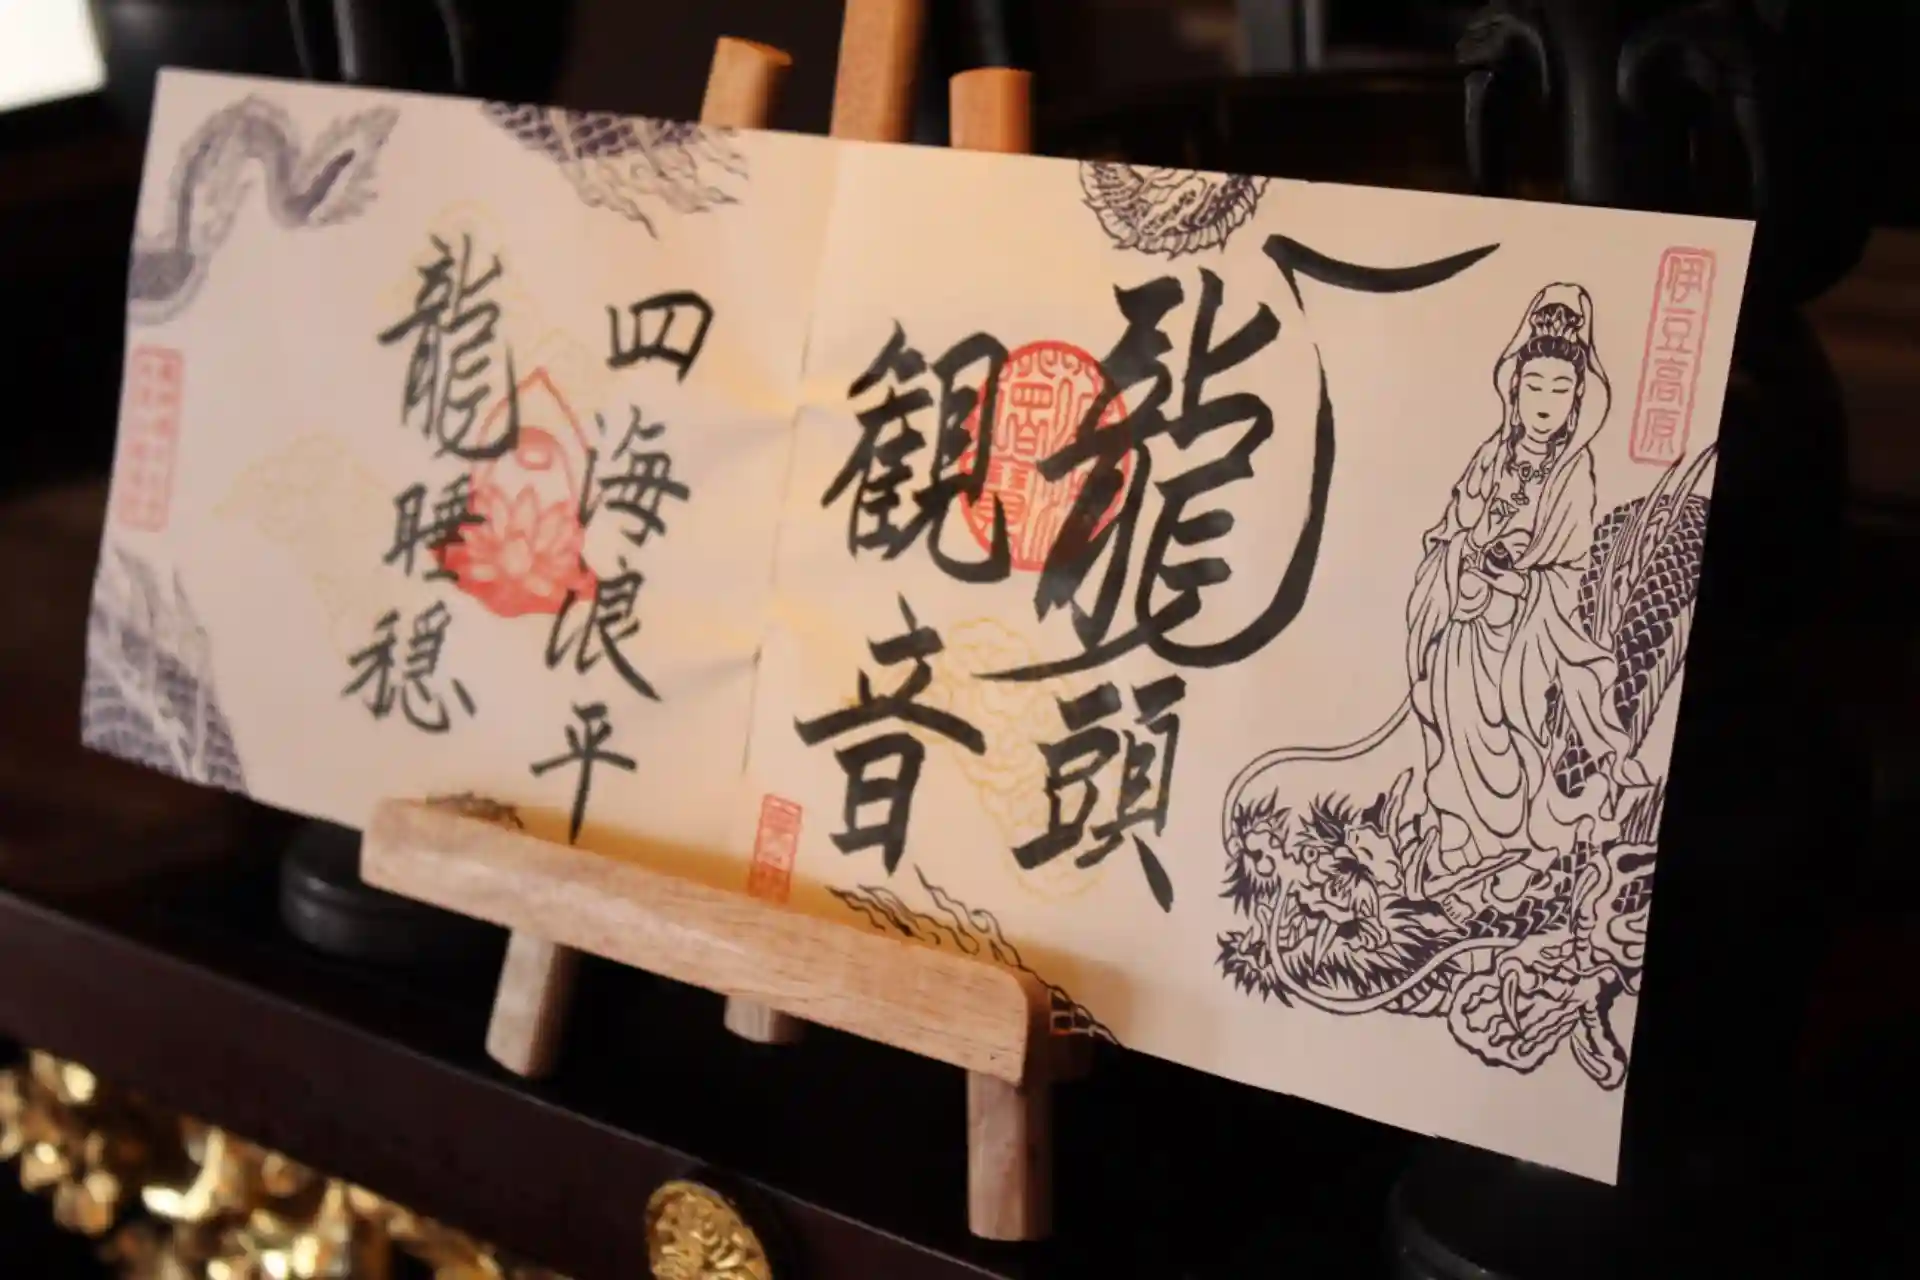 伊豆高原
龍頭
観音
四海浪平
龍睡穏